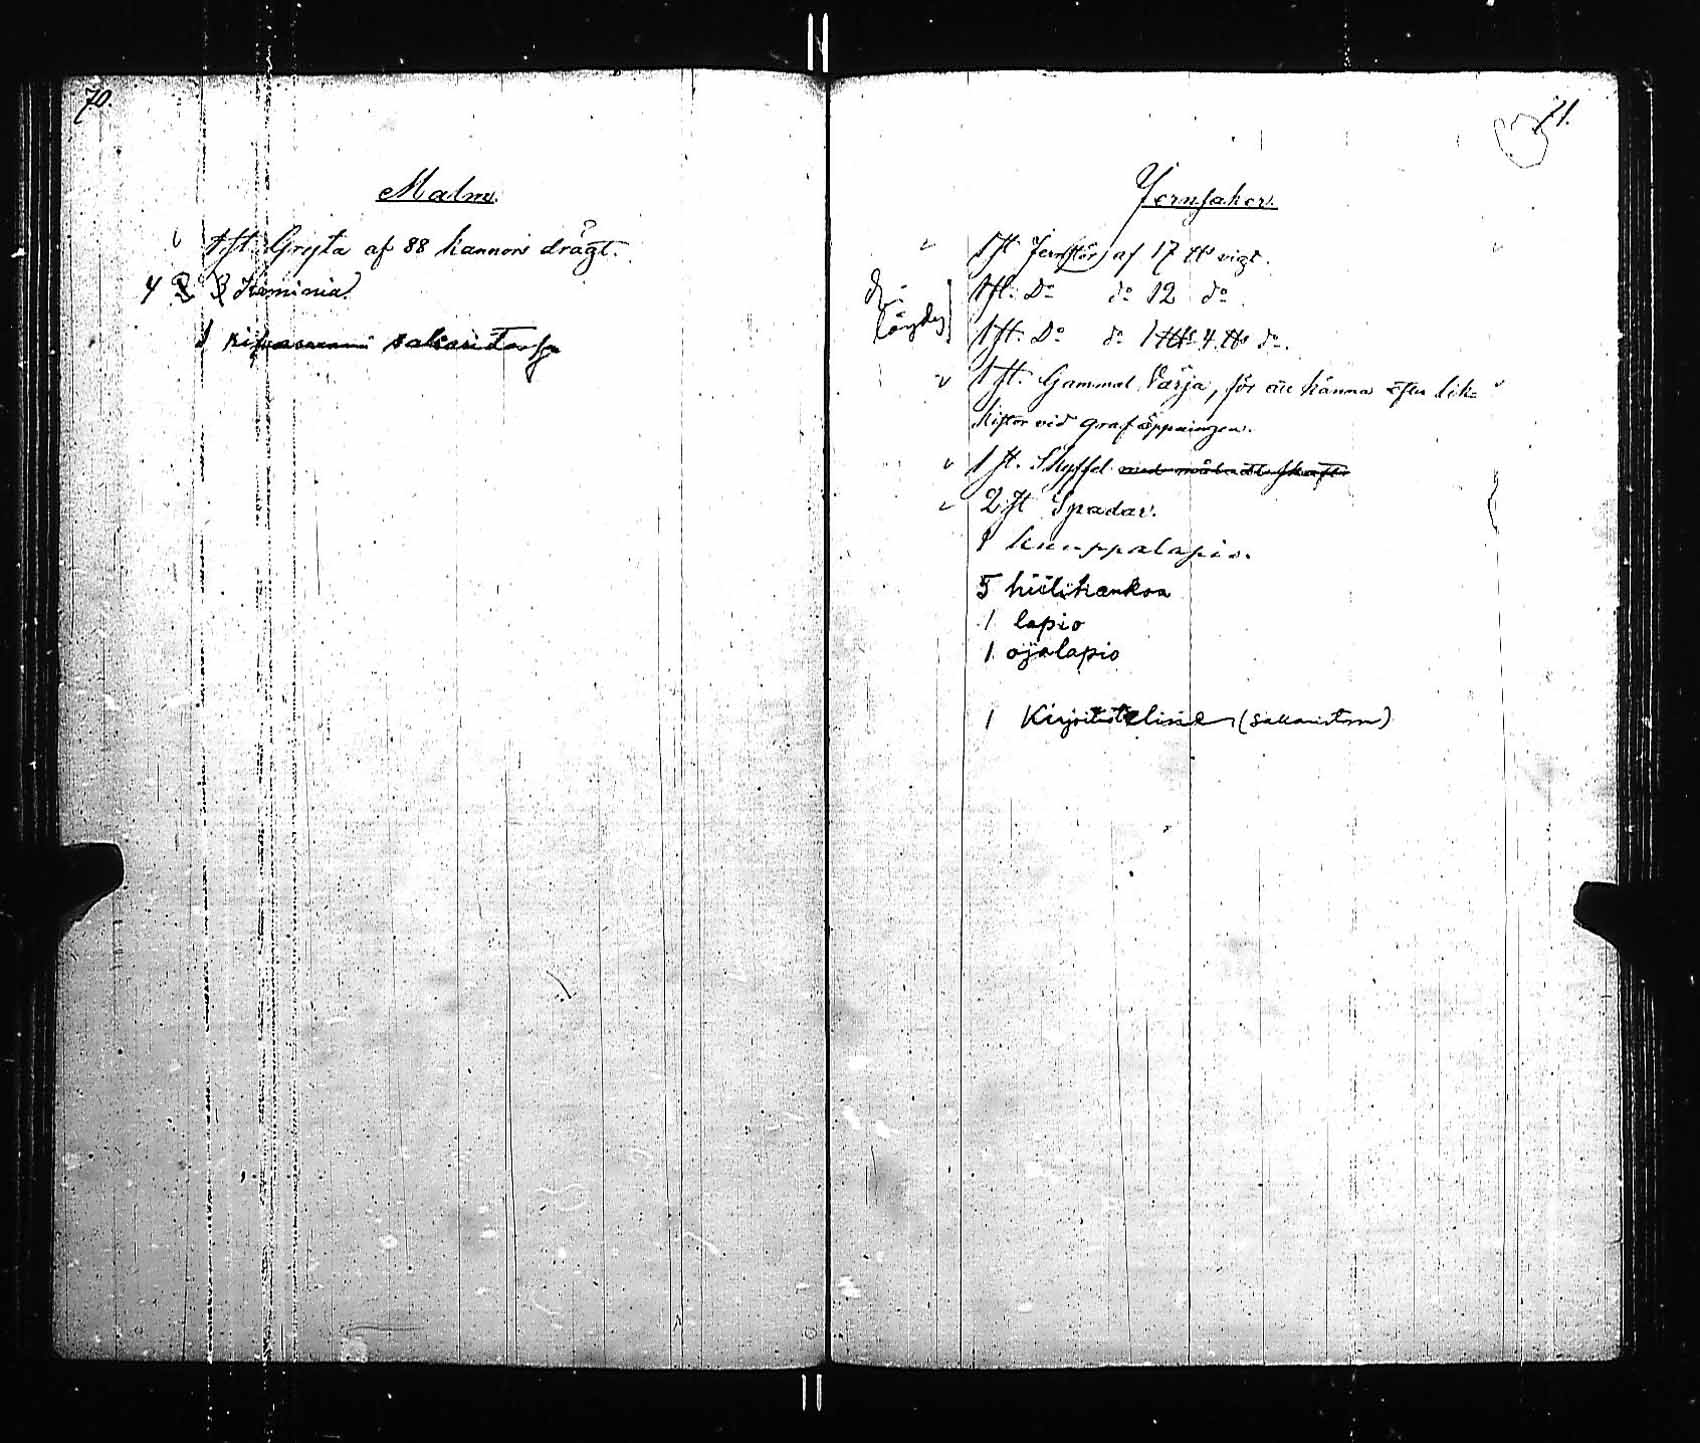 70.
Malm.
1 st. Gryta af 88 kannors drägt.
4 3 Kaminia.
1 sakaristossa
71.
Jernsaker.
1 st. Jernstör af 17 ℔ vigt.
1 st. Do do 12 do.
1 st. Do do 1 L℔ 4 ℔ do.
ei löydy
1 st. Gammal Värja, för att känna efter lik-
kistor vid graföppningen.
1 st. Skyffel med måladt skaft
2 st Spadar.
1 kuuppalapio.
5 hiilihankoa
1 lapio
1 ojalapio
1 Kirjoitusteline (sakaristossa)